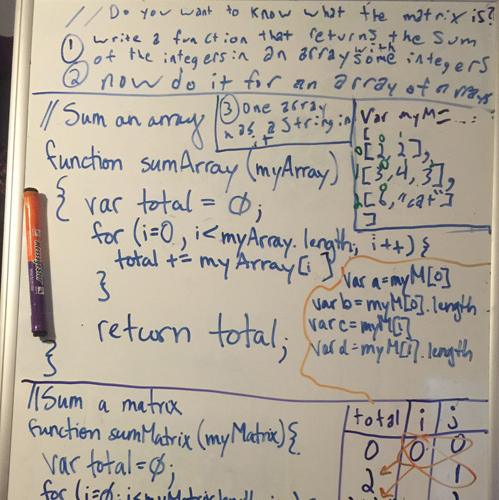 // Do you want to know what the matrix is?
① write a function that returns the sum
of the integers in an array with some integers
② now do it for an array of arrays
// Sum an array
③ one array
has a string in
it
var myM=...:
[ 0 1
0[2, 2],
1[3, 4, 3],
2[6, "cat"]
]
function sumArray (myArray)
{ var total = 0;
for (i=0, i<myArray.length; i++) {
total += myArray[i]
}
return total;
}
var a=myM[0]
var b=myM[0].length
var c=myM[i]
var d=myM[i].length
// Sum a matrix
function sumMatrix (myMatrix) {
var total=0;
for (i=0; i<myMatrix.length; i++)
total i j
0 0 0
2 1